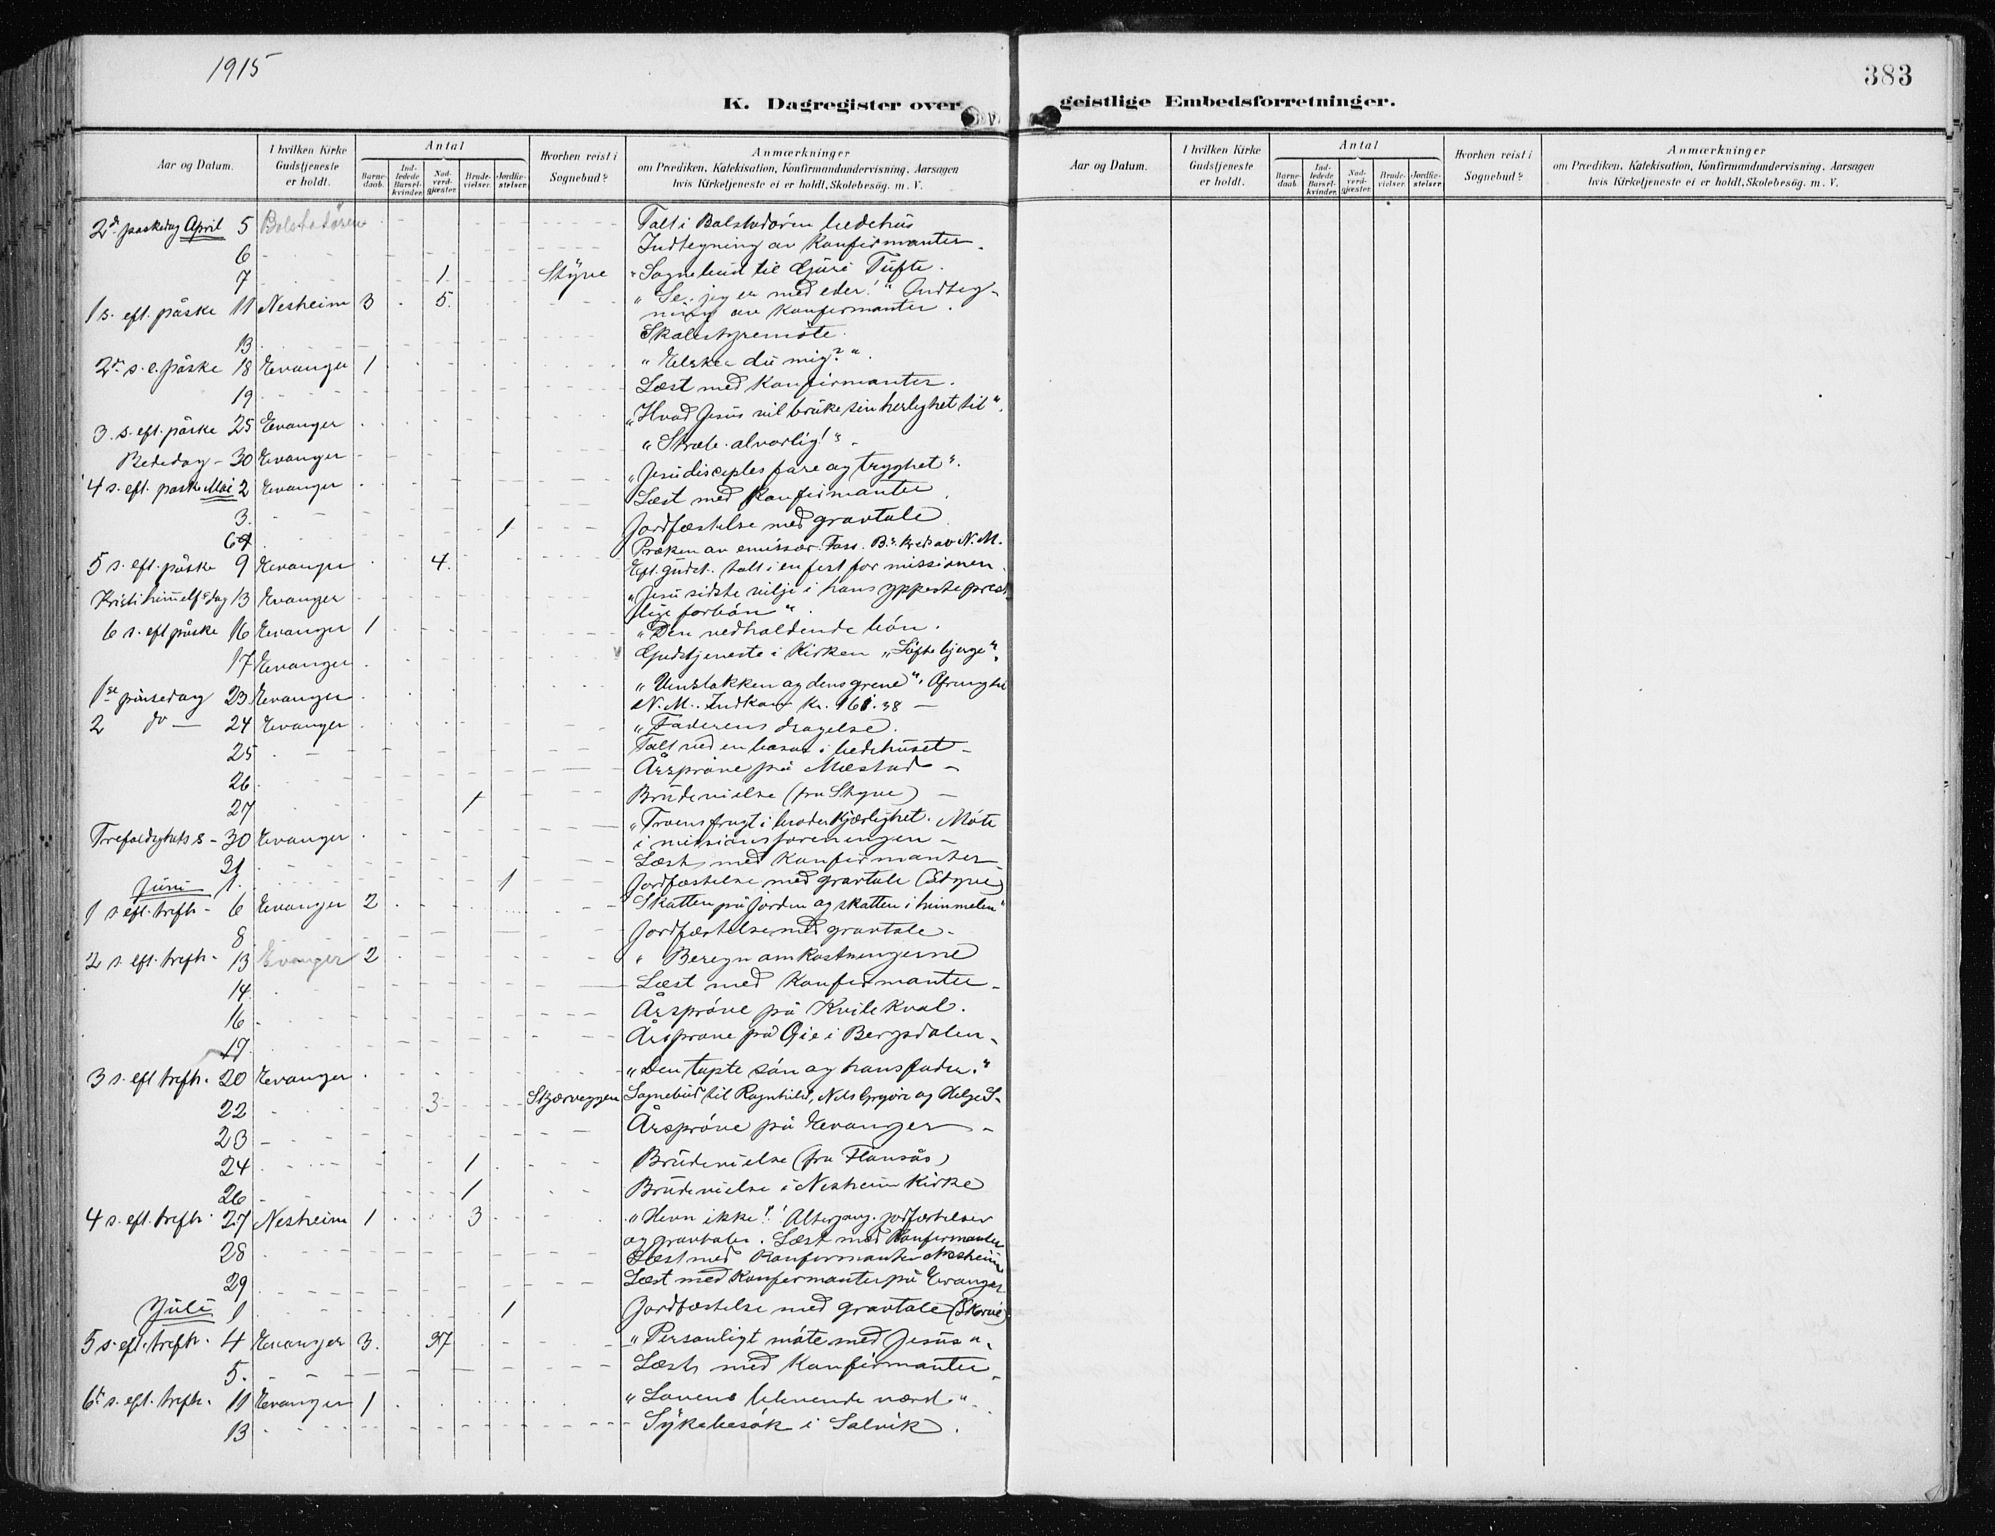 1915
383
K. Dagregister over geistlige Embedsforretninger.
Aar og Datum. I hvilken Kirke Gudstjeneste er holdt. Antal Barnedaab. Indledede Barselkvinder. Nadverdgjæster. Brudevielser. Jordfæstelser. Hvorhen reist i Sognebud? Anmærkninger om Prædiken, Katekisation, Konfirmandundervisning, Aarsagen hvis Kirketjeneste ei er holdt, Skolebesøg. m. V.
Aar og Datum. I hvilken Kirke Gudstjeneste er holdt. Antal Barnedaab. Indledede Barselkvinder. Nadverdgjæster. Brudevielser. Jordfæstelser. Hvorhen reist i Sognebud? Anmærkninger om Prædiken, Katekisation, Konfirmandundervisning, Aarsagen hvis Kirketjeneste ei er holdt, Skolebesøg. m. V.
2d. paaskedag April 5 Bolstadören Talt i Bolstadören bedehus
6 Indtegning av konfirmanter.
7 1 Styve Sognebud til Guri Tufte.
1 s. eft. påske 11 Nesheim 3 5 "Se, jeg er med eder!" Indteg-
ning av konfirmanter.
13 Skolestyremöte.
2n s. e. påske 18 Evanger 1 "Elsker du mig?".
19 Læst med konfirmanter.
3. s. eft. påske 25 Evanger "Hvad Jesus vil bruke sin herlighet til".
Bededag - 30 Evanger "Stræb alvorlig!".
4 s. eft. påske Mai 2 Evanger "Jesu disciples fare og tryghet".
3. Læst med konfirmanter.
6 1 Jordfæstelse med gravtale.
Præken av emissær Foss. B.s kreds av N.M.
5 s. eft. påske 9 Evanger 4. Eft. gudst. talt i en fest for missionen.
Kristi himelf.dag 13 Evanger "Jesu sidste vilje i hans yppersteprest-
lige forbön".
6 s. eft påske 16 Evanger 1 "Den vedholdende bön.
17 Evanger Gudstjeneste i kirken "Löftebjerge".
1ste pinsedag 23. Evanger "Vinstokken og dens grene".
N.M. Indkom kr. 161.38 -
2 do - 24 Evanger "Faderens dragelse.
25 Talt ved en basar i bedehuset -
26 Årspröve på Mæstad -
27 1 Brudevielse (fra Styve) -
Trefoldighets s - 30 Evanger "Troens frugt i broderkjærlighet. Möte
i missionsforeningen -
31 Læst med konfirmanter
Juni 1. 1 Jordfæstelse med gravtale (Styve)
1 s eft. trefh - 6 Evanger 2 Skatten på jorden og skatten i himmelen"
8 Jordfæstelse med gravtale -
2 s. eft. trefh - 13 Evanger 2 " Beregn omkostningerne
14 Læst med konfirmanter -
16 Årspröve på Kvilekval.
17. Årspröve på Öie i Bergsdalen -
3 s. eft trefh. 20 Evanger "Den tapte sön og hans fader."
22 3 Skjerveggen Sognebud til Ragnhild, Nils Grjöre og Helge S-
23 Årspröve på Evanger -
24 1 Brudevielse (fra Flansås)
26 1 Brudevielse i Nesheim kirke
4 s. eft. trefh. 27 Nesheim 1 3 "Hevn ikke!" Altergang. jordfæstelser
og gravtaler. Læst med konfirmanter
28 Læst med konfirmanter Nesheim
29 Læst med konfirmanter på Evanger
Juli 1 1 Jordfæstelse med gravtale
5 s. eft. trefh. 4 Evanger 3. 37 "Personligt möte med Jesus".
5. Læst med konfirmanter -
6te s. eft. trefh. 11 Evanger 1 "Lovens blivende værd".
13 Sykebesök i Salvik.